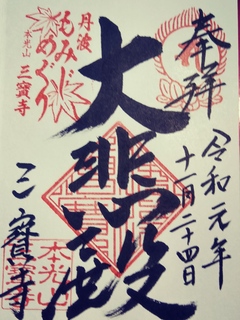 奉拝
令和元年
十一月二十四日
大悲殿
丹波
もみじ
めぐり
本光山
三寶寺
三寶寺
本光山